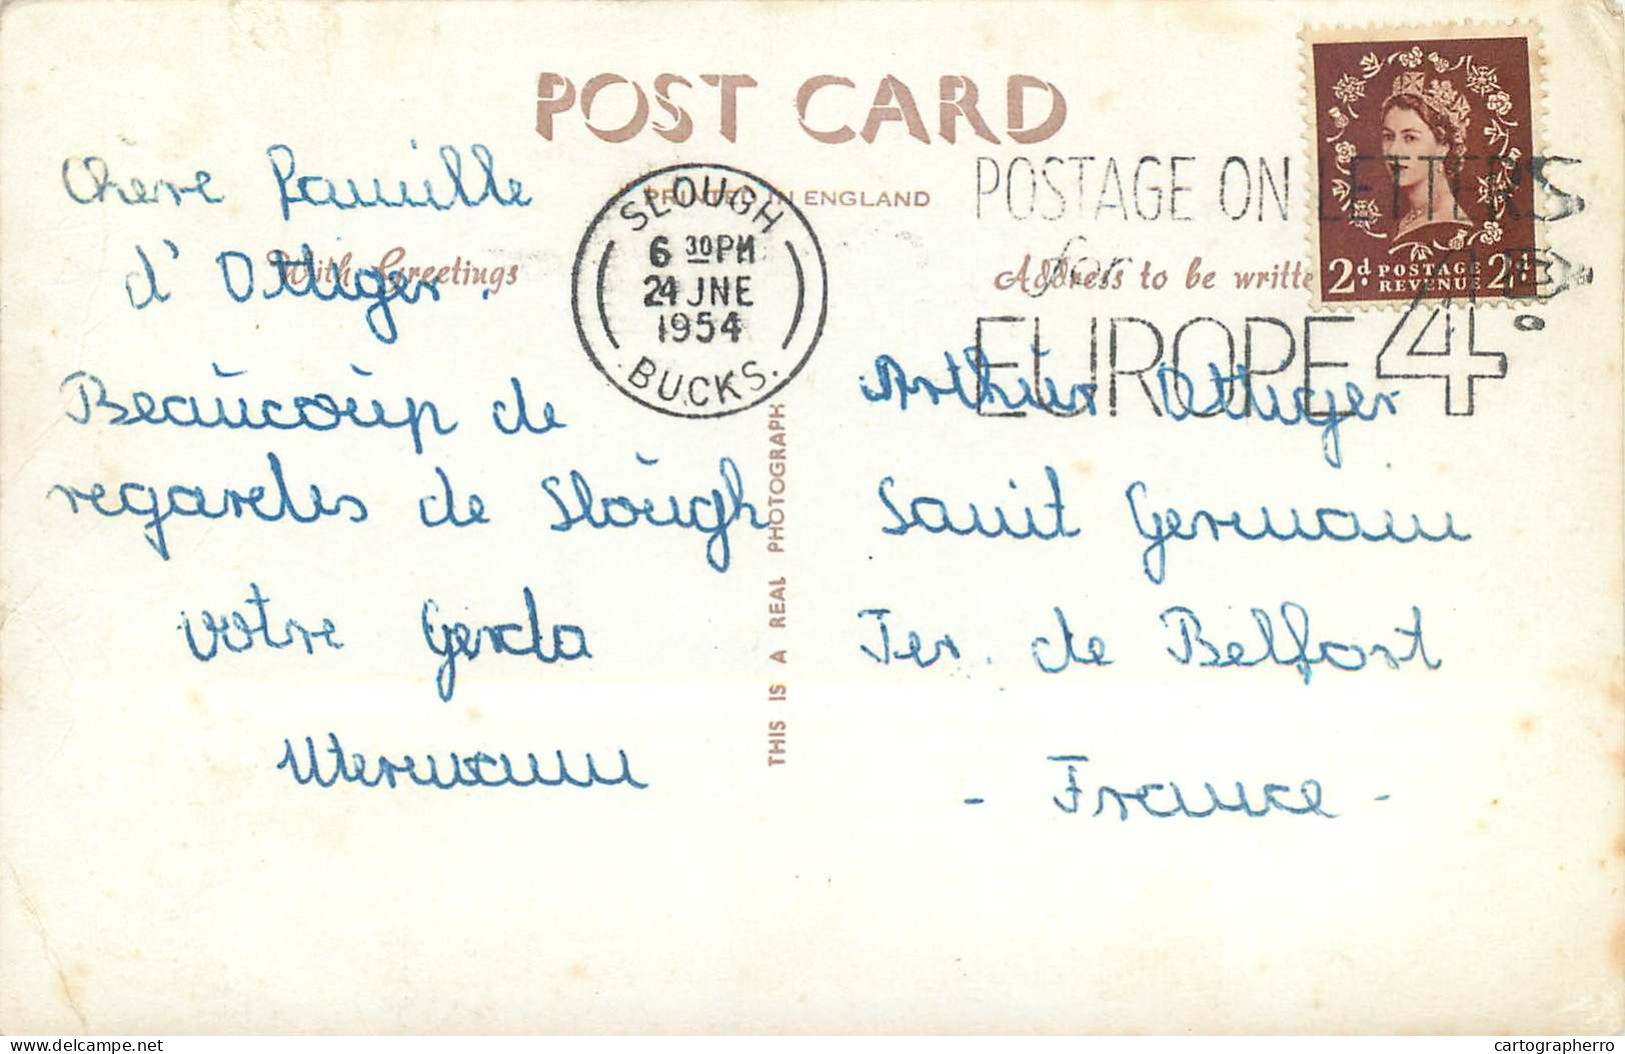 POST CARD
PRINTED IN ENGLAND
With Greetings
Address to be writte
THIS IS A REAL PHOTOGRAPH
SLOUGH
6 30 PM
24 JNE
1954
BUCKS.
POSTAGE ON LETTERS
for
EUROPE 4
2d POSTAGE 2d
REVENUE
Chère famille
d'Ottiger.
Beaucoup de
regardes de Slough
votre Gerda
Utermann
Arthur Ottiger
Sanit Germain
Ter. de Belfort
- France -
delcampe.net
cartographerro